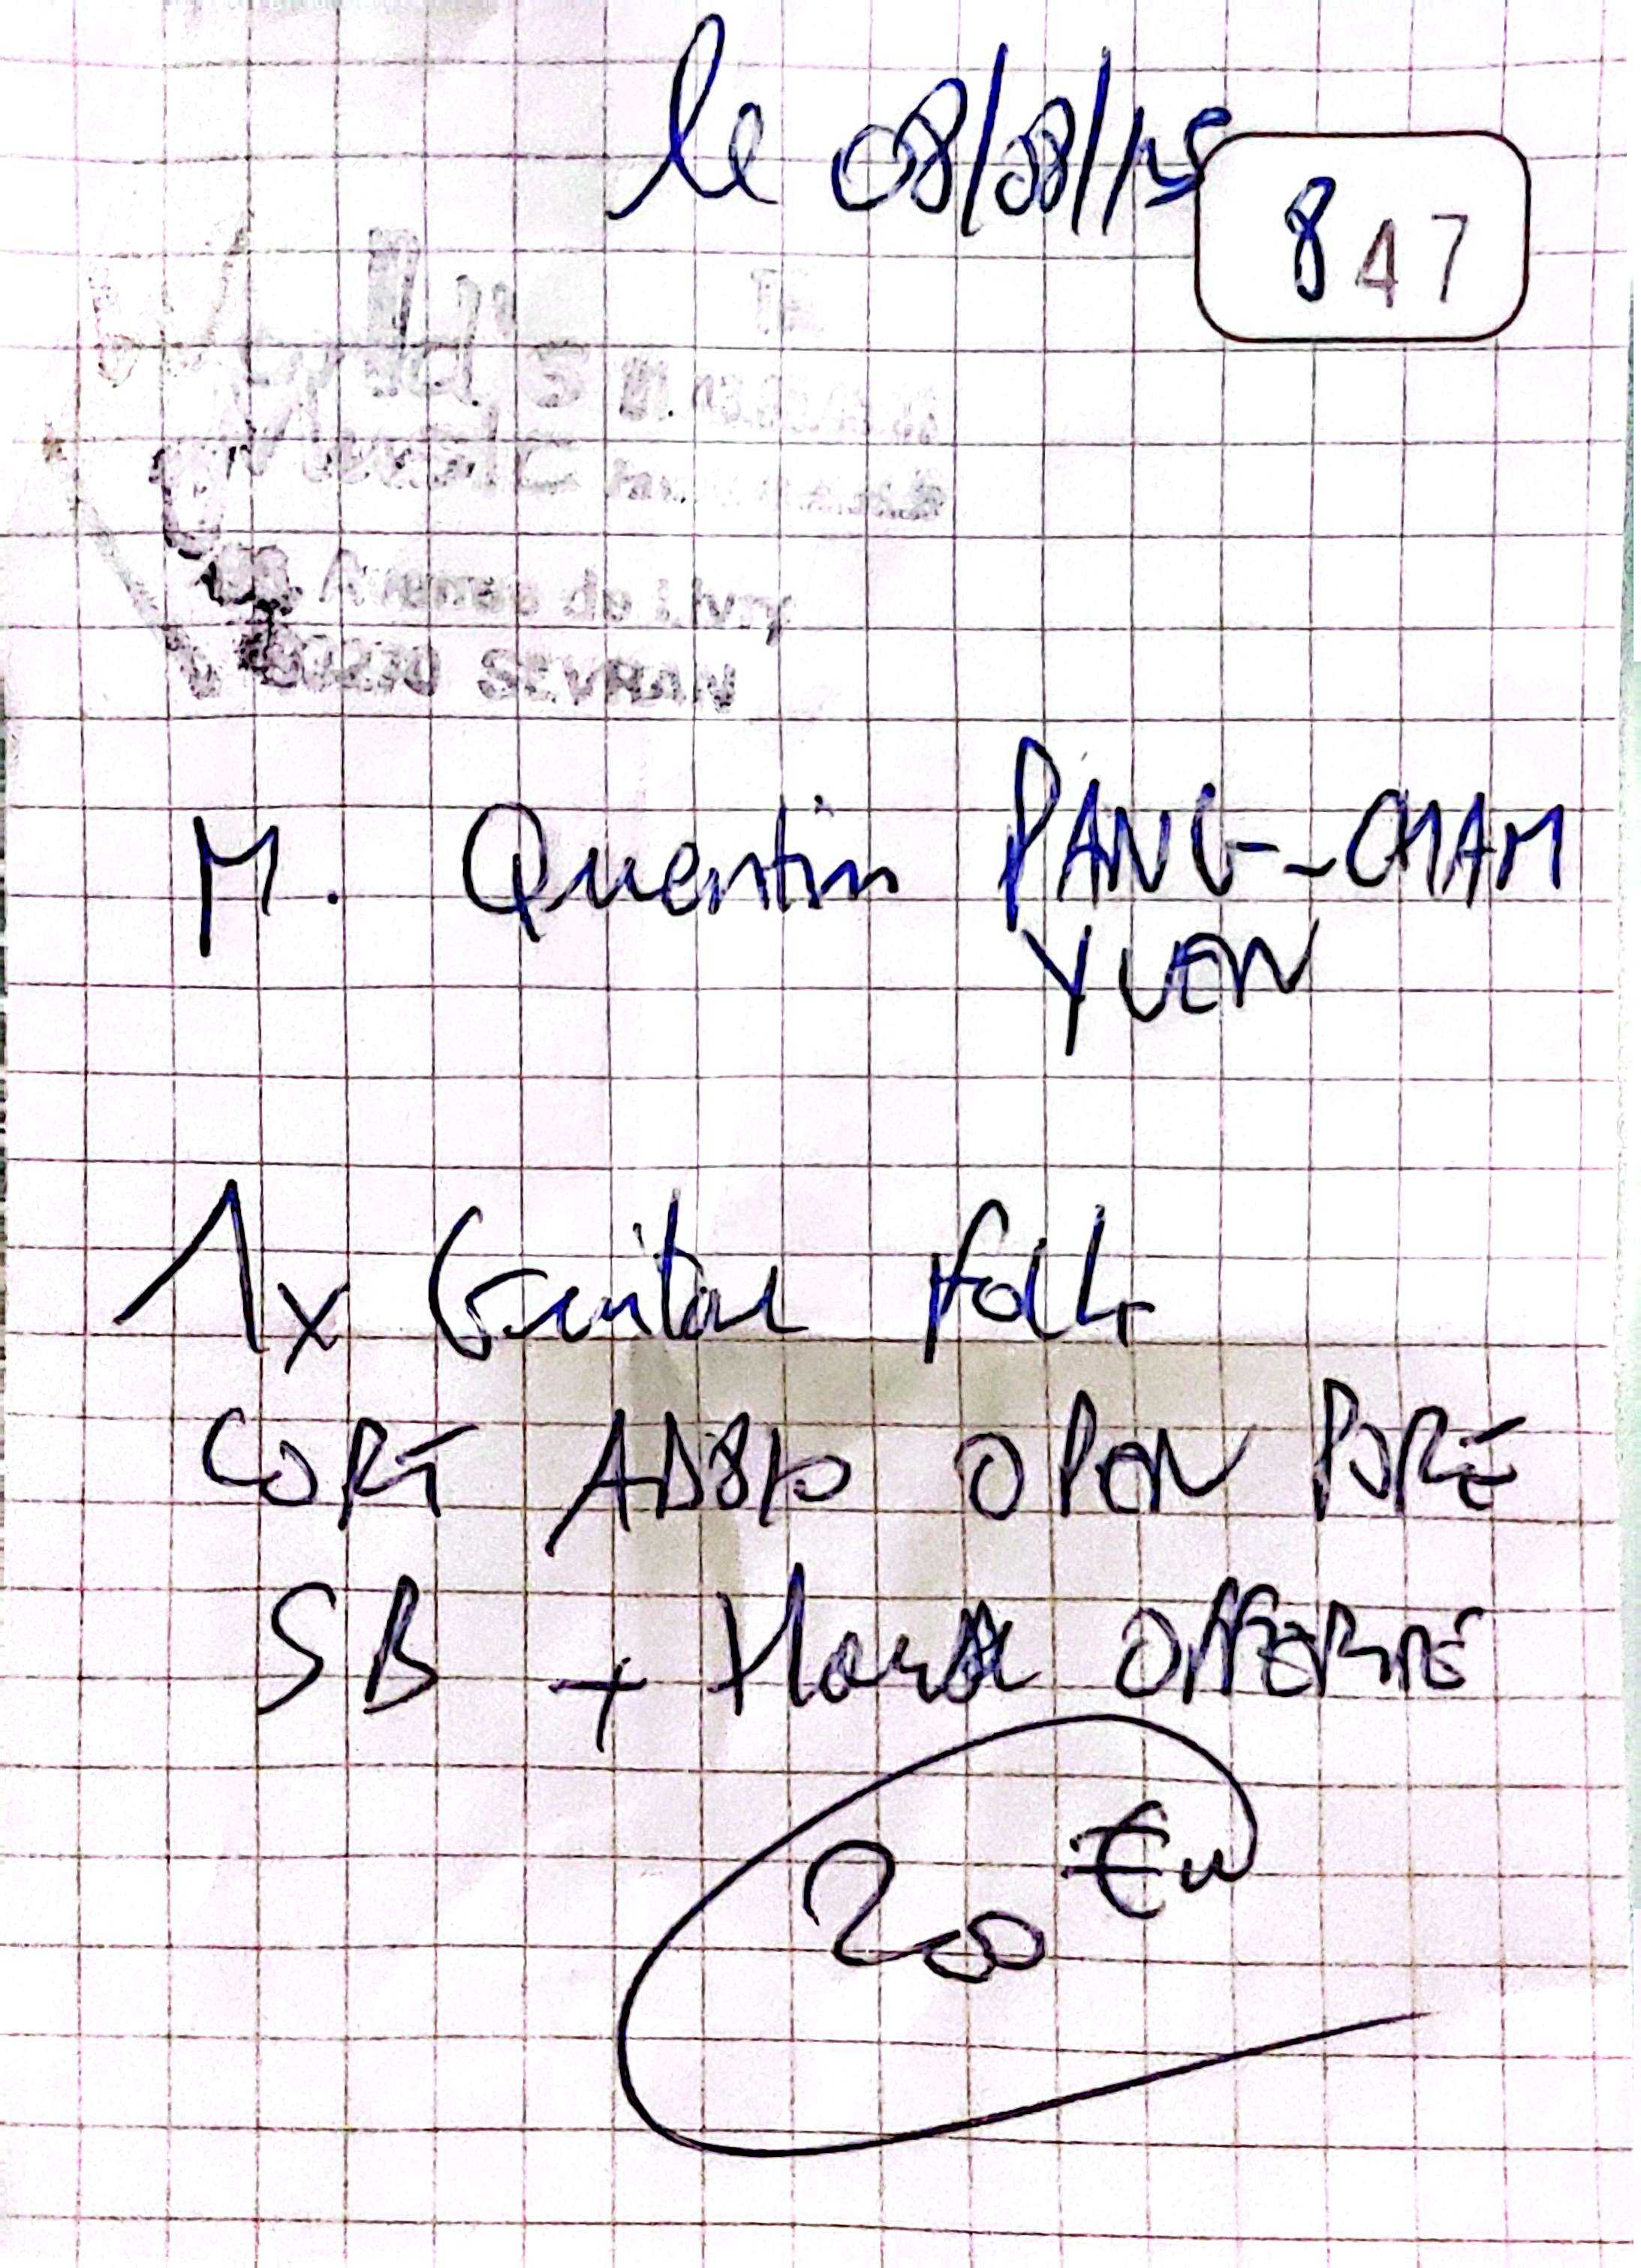 le 08/08/15
847
Music
Avenue de Livry
SEVRAN
M. Quentin PANG-CHAM
YUEN
1x Guitare folk
CORT AD810 OPEN PORE
SB + Housse OFFERTE
200 €